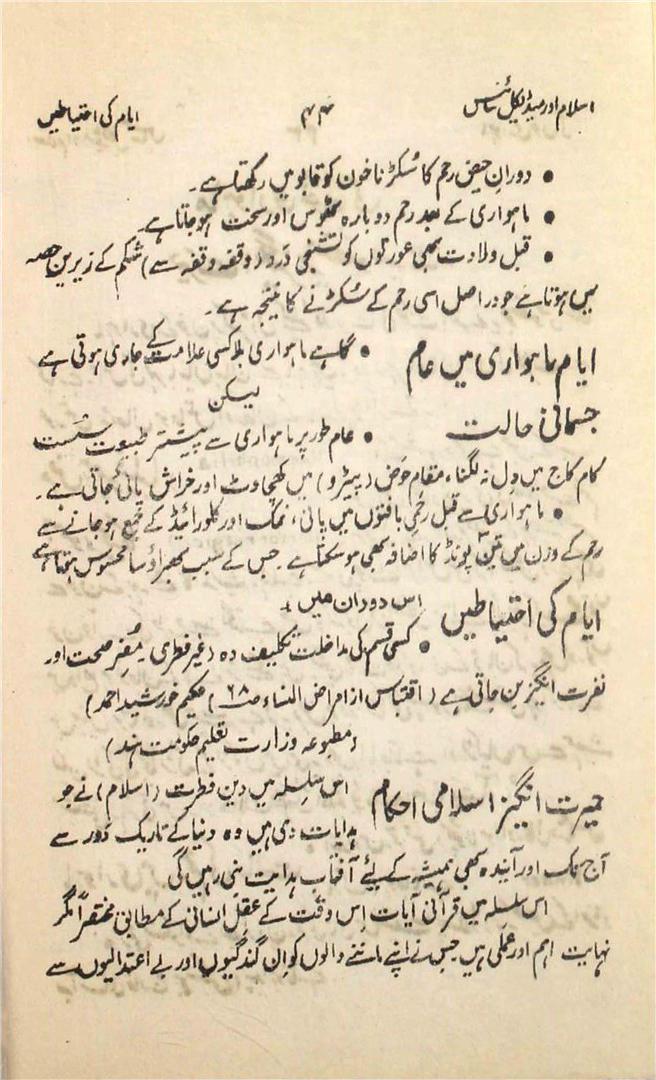 اسلام اور میڈیکل سائنس ۴۴ ایام کی احتیاطیں
• دورانِ حیض رحم کا سُکڑنا خون کو قابو میں رکھتا ہے۔
• ماہواری کے بعد رحم دوبارہ ٹھوس اور سخت ہوجاتا ہے۔
• قبل ولادت بھی عورتوں کو تشنجی درد (وقفہ وقفہ سے) شکم کے زیریں حصہ
میں ہوتا ہے جو در اصل اسی رحم کے سُکڑنے کا نتیجہ ہے۔
ایام ماہواری میں عام • گاہے ماہواری بلا کسی علامت کے جاری ہوتی ہے
لیکن
جسمانی حالت • عام طور پر ماہواری سے پیشتر طبیعت سُست
کام کاج میں دِل نہ لگنا، مقام حَوض (پیڑو) میں کھچاوٹ اور خراش پائی جاتی ہے۔
• ماہواری سے قبل رحمی بافتوں میں پانی، نمک اور کلورائیڈ کے جمع ہوجانے سے
رحم کے وزن میں تین پونڈ کا اضافہ بھی ہوسکتا ہے جس کے سبب بھراؤ سا محسوس ہوتا ہے
ایام کی احتیاطیں اس دوران میں
• کسی قسم کی مداخلت تکلیف دہ (غیر فطری) مُضِر صحت اور
نفرت انگیز بن جاتی ہے (اقتباس از امراض النساء صـ ۶۸) حکیم خورشید احمد)
(مطبوعہ وزارت تعلیم حکومت ہند)
حیرت انگیز اسلامی احکام اس سِلسِلہ میں دین فطرت (اسلام) نے جو
ہدایات دی ہیں وہ دنیا کے تاریک دَور سے
آج تک اور آیندہ بھی ہمیشہ کے لیئے آفتاب ہدایت بنی رہیں گی
اس سلسلہ میں قرآنی آیات اِس وقت کے عقلِ انسانی کے مطابق مختصراً مگر
نہایت اہم اور عملی ہیں جس نے اپنے ماننے والوں کو اِن گندگیوں اور بے اعتدالیوں سے